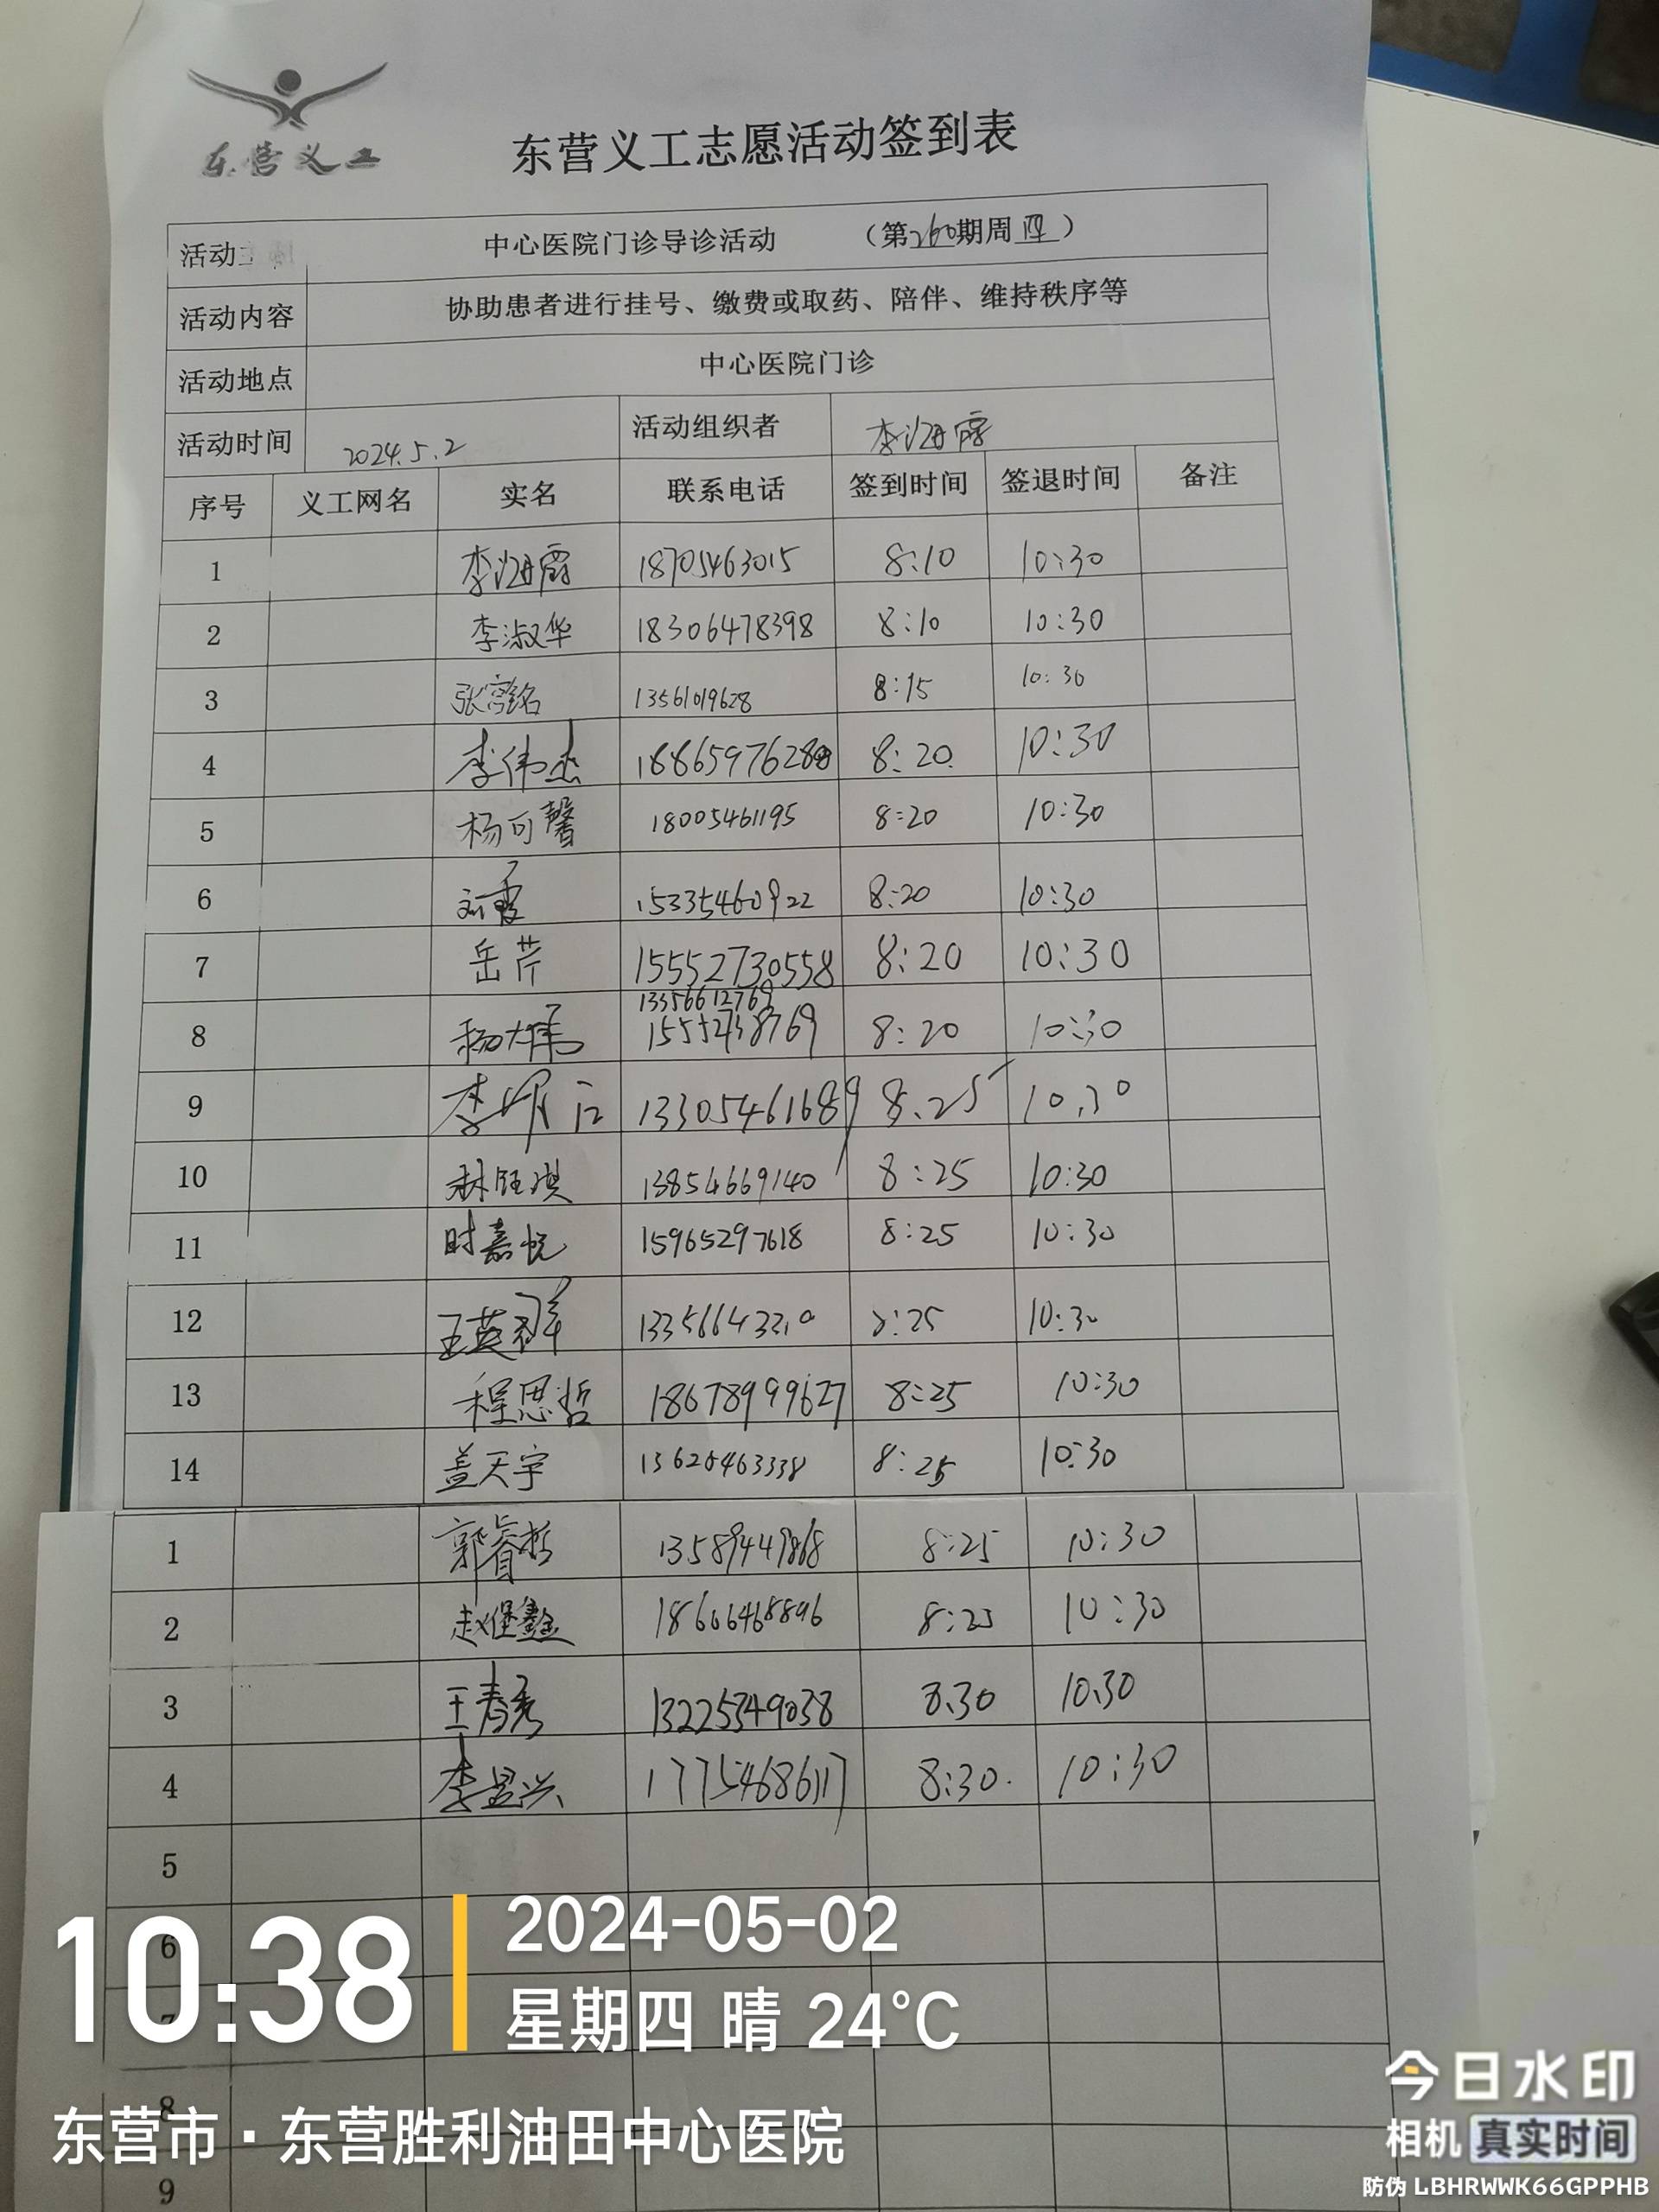 东营义工
东营义工志愿活动签到表
活动主 中心医院门诊导诊活动 （第260期周四）
活动内容 协助患者进行挂号、缴费或取药、陪伴、维持秩序等
活动地点 中心医院门诊
活动时间 2024.5.2 活动组织者 李海霞
序号 义工网名 实名 联系电话 签到时间 签退时间 备注
1 李海霞 18705463015 8:10 10:30
2 李淑华 18306478398 8:10 10:30
3 13561019628 8:15 10:30
4 李伟杰 8:20 10:30
5 杨可馨 18005461195 8:20 10:30
6 刘霞 15335460922 8:20 10:30
7 岳芹 15552730558 8:20 10:30
13356612769
8 8:20 10:30
9 13305461689 8.25 10.30
10 林钰淇 13854669140 8:25 10:30
11 时嘉悦 15965297618 8:25 10:30
12 王英群 8:25 10:30
13 程思哲 18678999627 8:25 10:30
14 盖天宇 8:25 10:30
1 郭睿哲 8:25 10:30
2 8:25 10:30
3 王春秀 13225349038 8.30 10.30
4 李显兴 17754686117 8:30. 10:30
5
6
7
8
9
10:38
2024-05-02
星期四 晴 24°C
东营市·东营胜利油田中心医院
今日水印
相机 真实时间
防伪 LBHRWWK66GPPHB